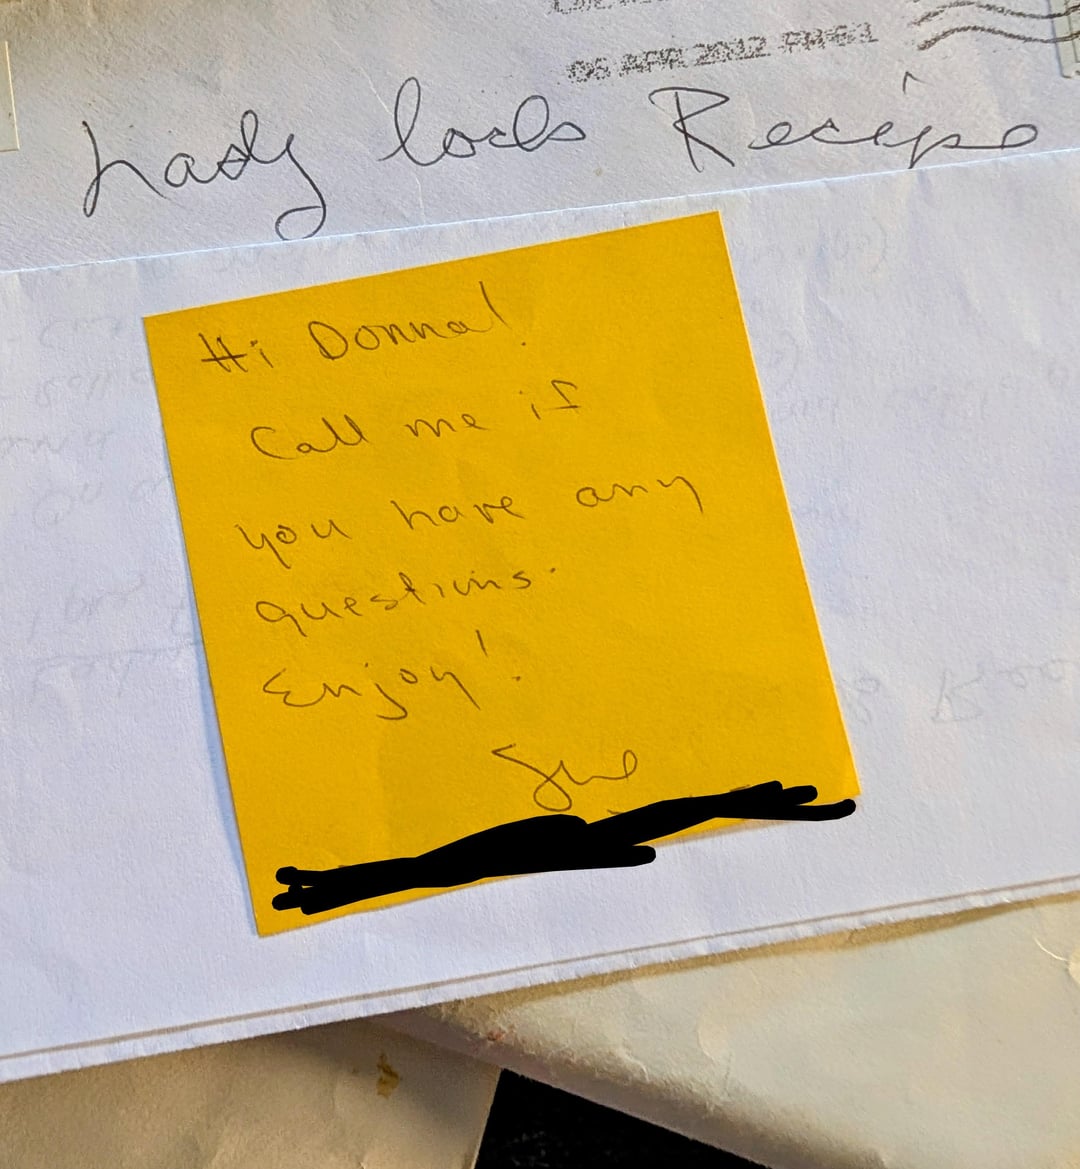 06 APR 2022 PM 6 L
Lady locks Recipe
Hi Donna!
Call me if
you have any
questions.
Enjoy!
Sue